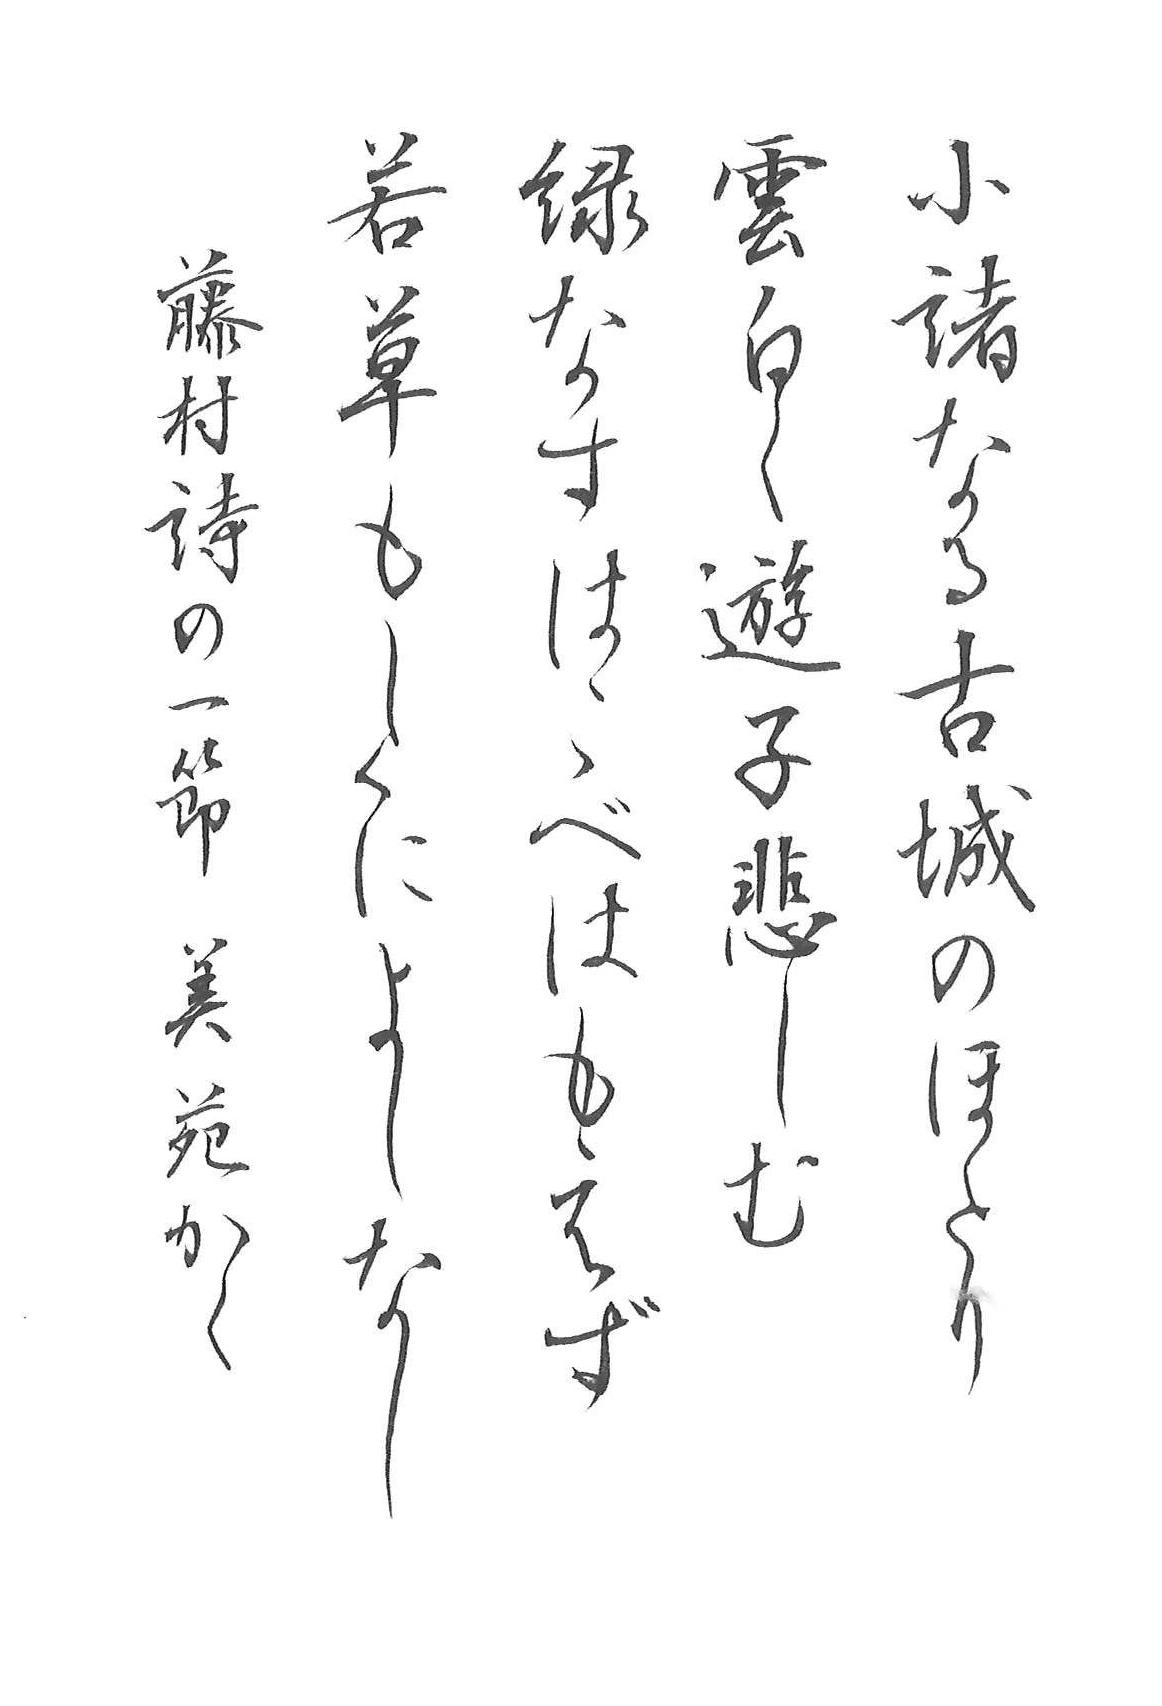 小諸なる古城のほとり
雲白く遊子悲しむ
緑なすはこべはもえず
若草もしくによしなし
藤村詩の一節 美苑かく